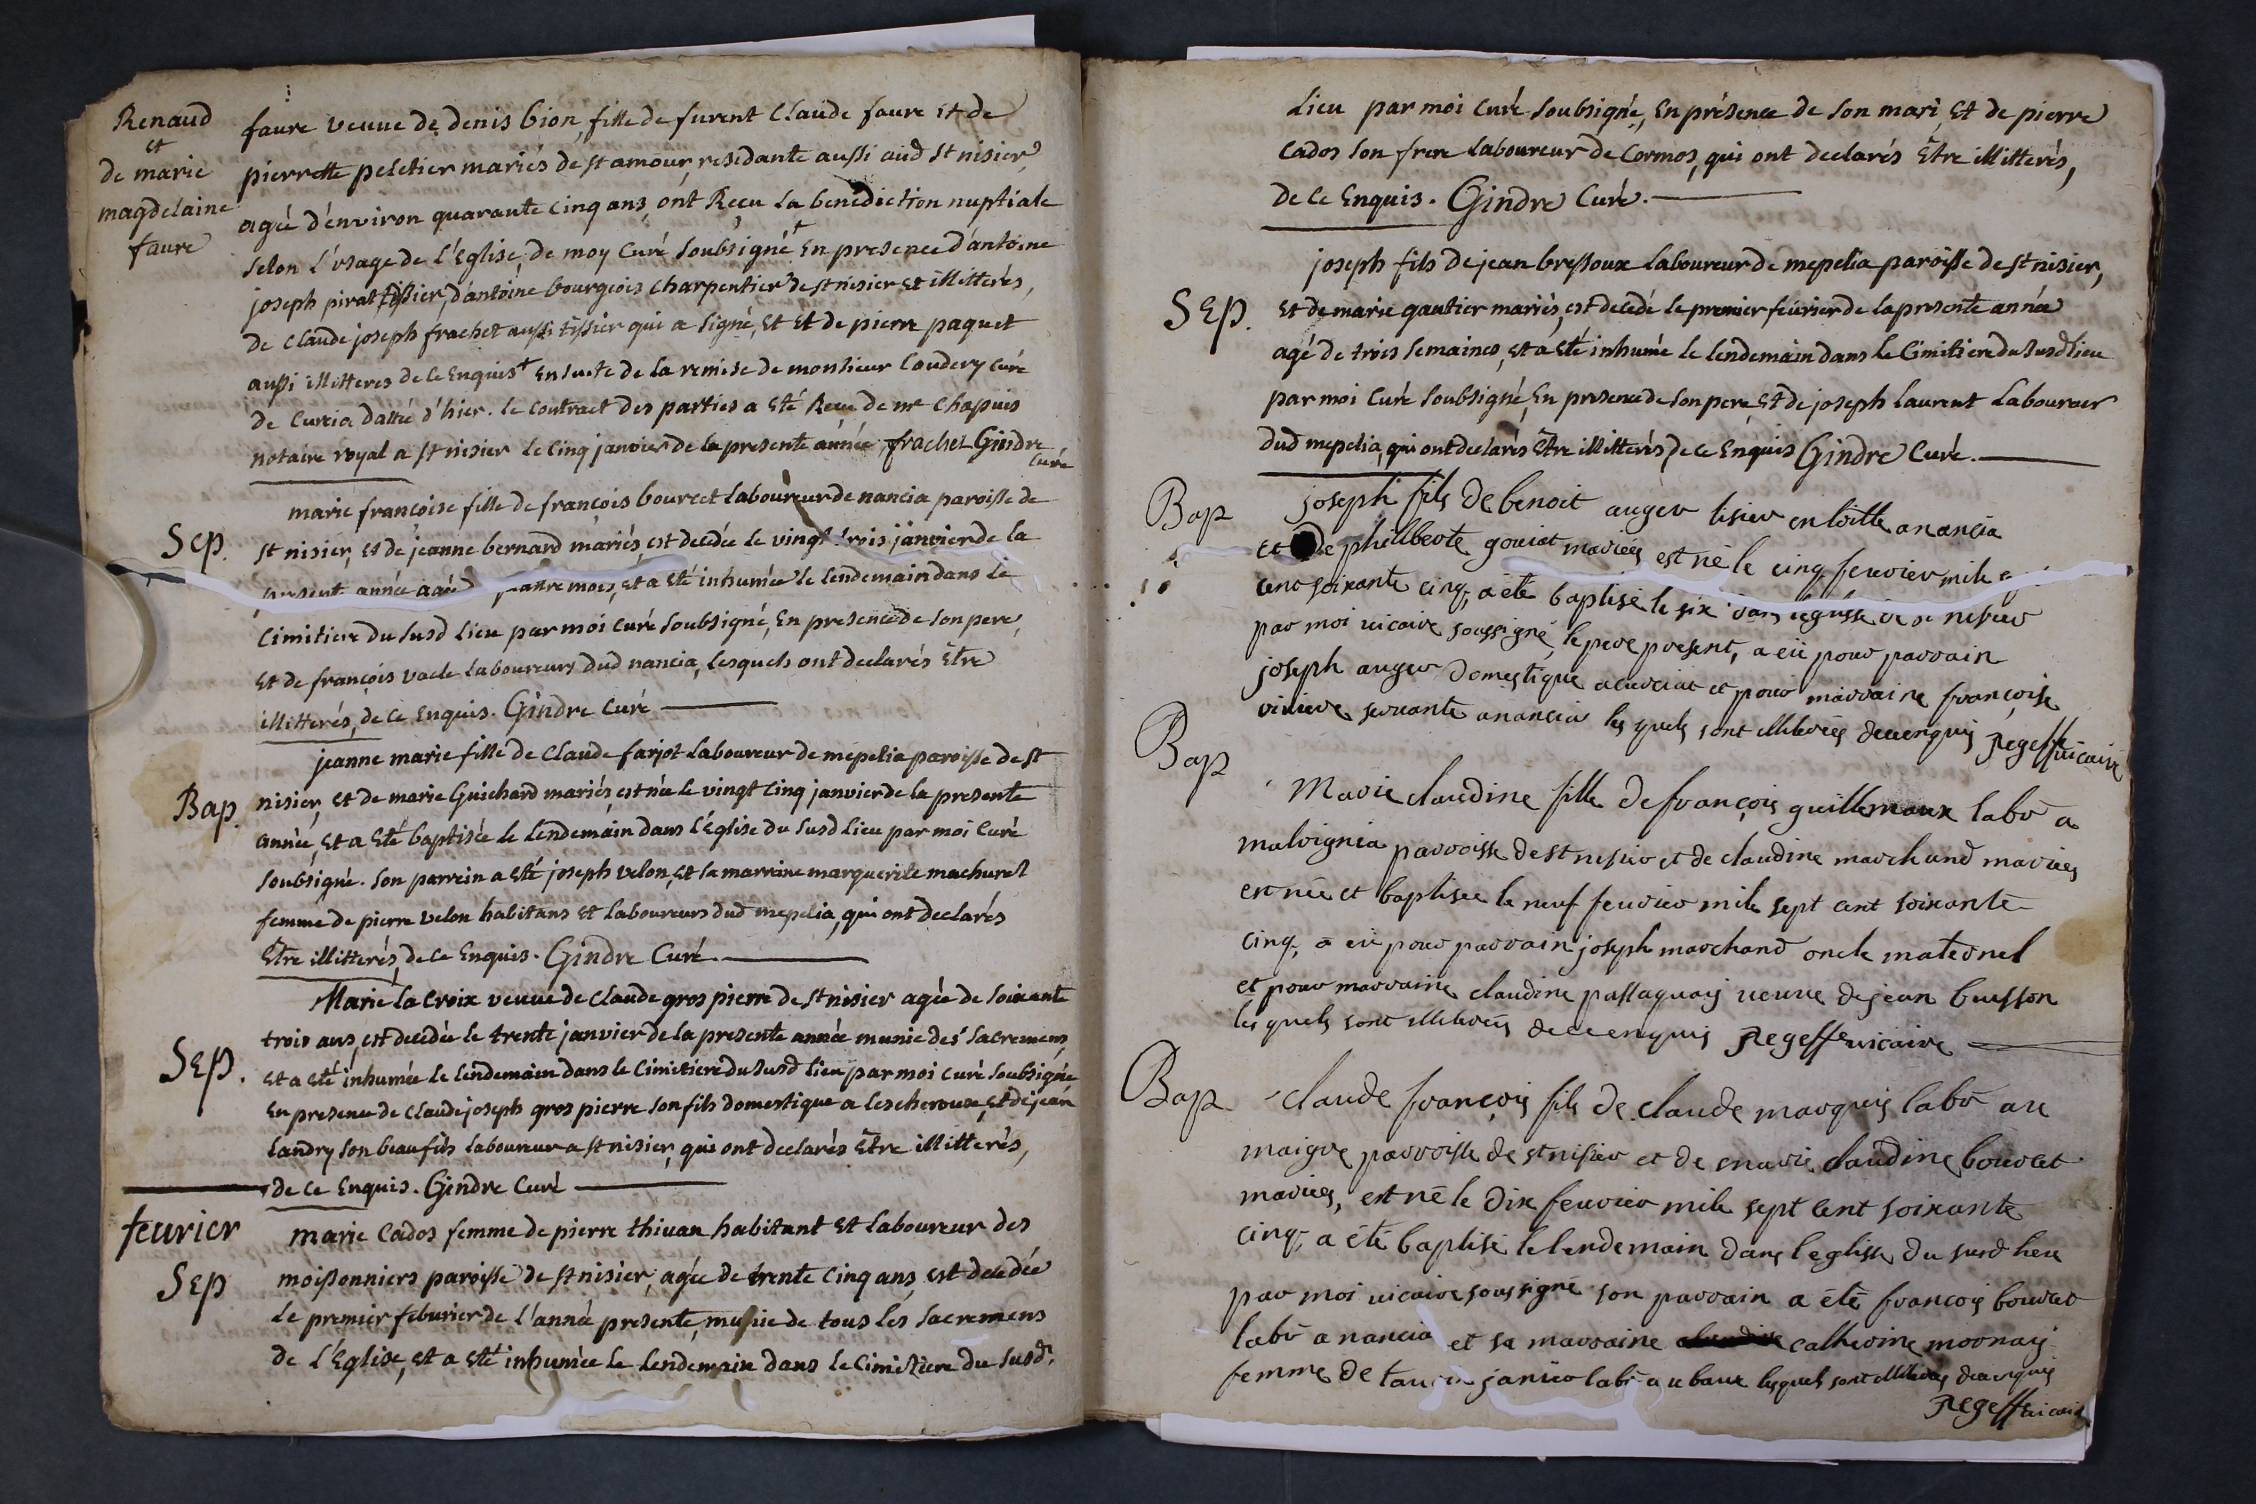 Renaud
et
de marie
magdelaine
faure
faure veuve de denis bion, fille de furent Claude faure et de
pierrette peletier mariés de st amour, residante aussi aud st nisier,
agée d'environ quarante cinq ans, ont Reçu la benediction nuptiale
selon l'usage de l'Eglise, de moy Curé soubsigné + En presence d'antoine
joseph pirat tissier, d'antoine bourgeois charpentier de st nisier et illitterés,
de claude joseph frachet aussi tissier qui a signé, et et de pierre paquet
aussi illitteres de ce Enquis + Ensuite de la remise de monsieur Caudery curé
de Curcia dattée d'hier. le contract des parties a Eté Reçu de mr Chapuis
notaire royal a st nisier le cinq janvier de la presente année frachet Gindre
Curé
Sep.
marie françoise fille de françois bourcet laboureur de nancia paroisse de
st nisier, et de jeanne bernard mariés, est decedée le vingt trois janvier de la
present année agée quattre mois, et a Eté inhumée le lendemain dans le
Cimitiere du susd lieu par moi curé soubsigné, En presence de son pere,
et de françois vacle laboureurs dud nancia, lesquels ont declarés Être
illitterés, de ce Enquis. Gindre Curé
Bap.
jeanne marie fille de Claude farjot laboureur de mepelia paroisse de st
nisier, et de marie Guichard mariés, est née le vingt cinq janvier de la presente
année, et a Eté baptisée le lendemain dans l'Eglise du susd lieu par moi Curé
soubsigné. son parrein a Eté joseph velon, et sa marraine marguerite machuret
femme de pierre velon habitans et laboureurs dud mepelia, qui ont declarés
Être illitterés, de ce Enquis. Gindre Curé
Sep.
Marie la croix veuve de Claude gros pierre de st nisier agée de soixante
trois ans, est decedée le trente janvier de la presente année munie des sacremens,
et a eté inhumée le lendemain dans le Cimitiere du susd lieu par moi curé soubsigné
En presence de Claude joseph gros pierre son fils domestique a lescheroux, et de jean
Landry son beau fils laboureur a st nisier, qui ont declarés Être illitterés,
de ce Enquis. Gindre Curé
feurier
Sep
marie Cados femme de pierre thivan habitant et laboureur des
moissonniers paroisse de st nisier, agée de trente cinq ans, est decedée
Le premier feburier de l'année presente, munie de tous les sacremens
de l'Eglise, et a eté inhumée le lendemain dans le Cimitiere du susd.
Lieu par moi curé soubsigné, En présence de son mari, et de pierre
Cados son frere laboureur de Cormos, qui ont declarés Être illitterés,
de ce Enquis. Gindre Curé.
Sep.
joseph fils de jean bressoux laboureur de mepelia paroisse de st nisier,
Et de marie gautier mariés, est decedé le premier feurier de la presente année
agé de trois semaines, et a eté inhumée le lendemain dans le Cimitiere du susd lieu
par moi Curé soubsigné, En presence de son pere, et de joseph laurent Laboureur
dud mepelia, qui ont declarés Être illitterés, de ce Enquis Gindre Curé.
Bap
joseph fils de benoit auger tisier en toille a nancia
et de philliberte gouiat mariés est né le cinq feuvrier mile
cent soixante cinq, a été baptisé le six dans leglisse de st nisier
par moi vicaire soussigné, le pere present, a eü pour parrain
joseph auger domestique a curciat et pour marraine françoise
viviere servante a nancia les quels sont illiterés de ce enquis Regeffe vicaire
Bap
Marie claudine fille de françois guillemaux labr a
malvignia parroisse de st nisier et de claudine marchand mariés
est née et baptisée le neuf feuvrier mile sept cent soixante
cinq, a eü pour parrain joseph marchand oncle maternel
et pour marraine claudine passaquay veuve de jean buisson
les quels sont illiterés de ce enquis Regeffe vicaire
Bap
claude françois fils de claude marquis labr au
maigre parroisse de st nisier et de marie claudine bourcet
mariés, est né le dix feuvrier mile sept cent soixante
cinq, a été baptisé le lendemain dans leglisse du susd lieu
par moi vicaire soussigné son parrain a été françois bourcet
labr a nancia et sa marraine catherine mornay
femme de janvier labr a ubaux lesquels sont illiterés de ce enquis
Regeffe vicaire